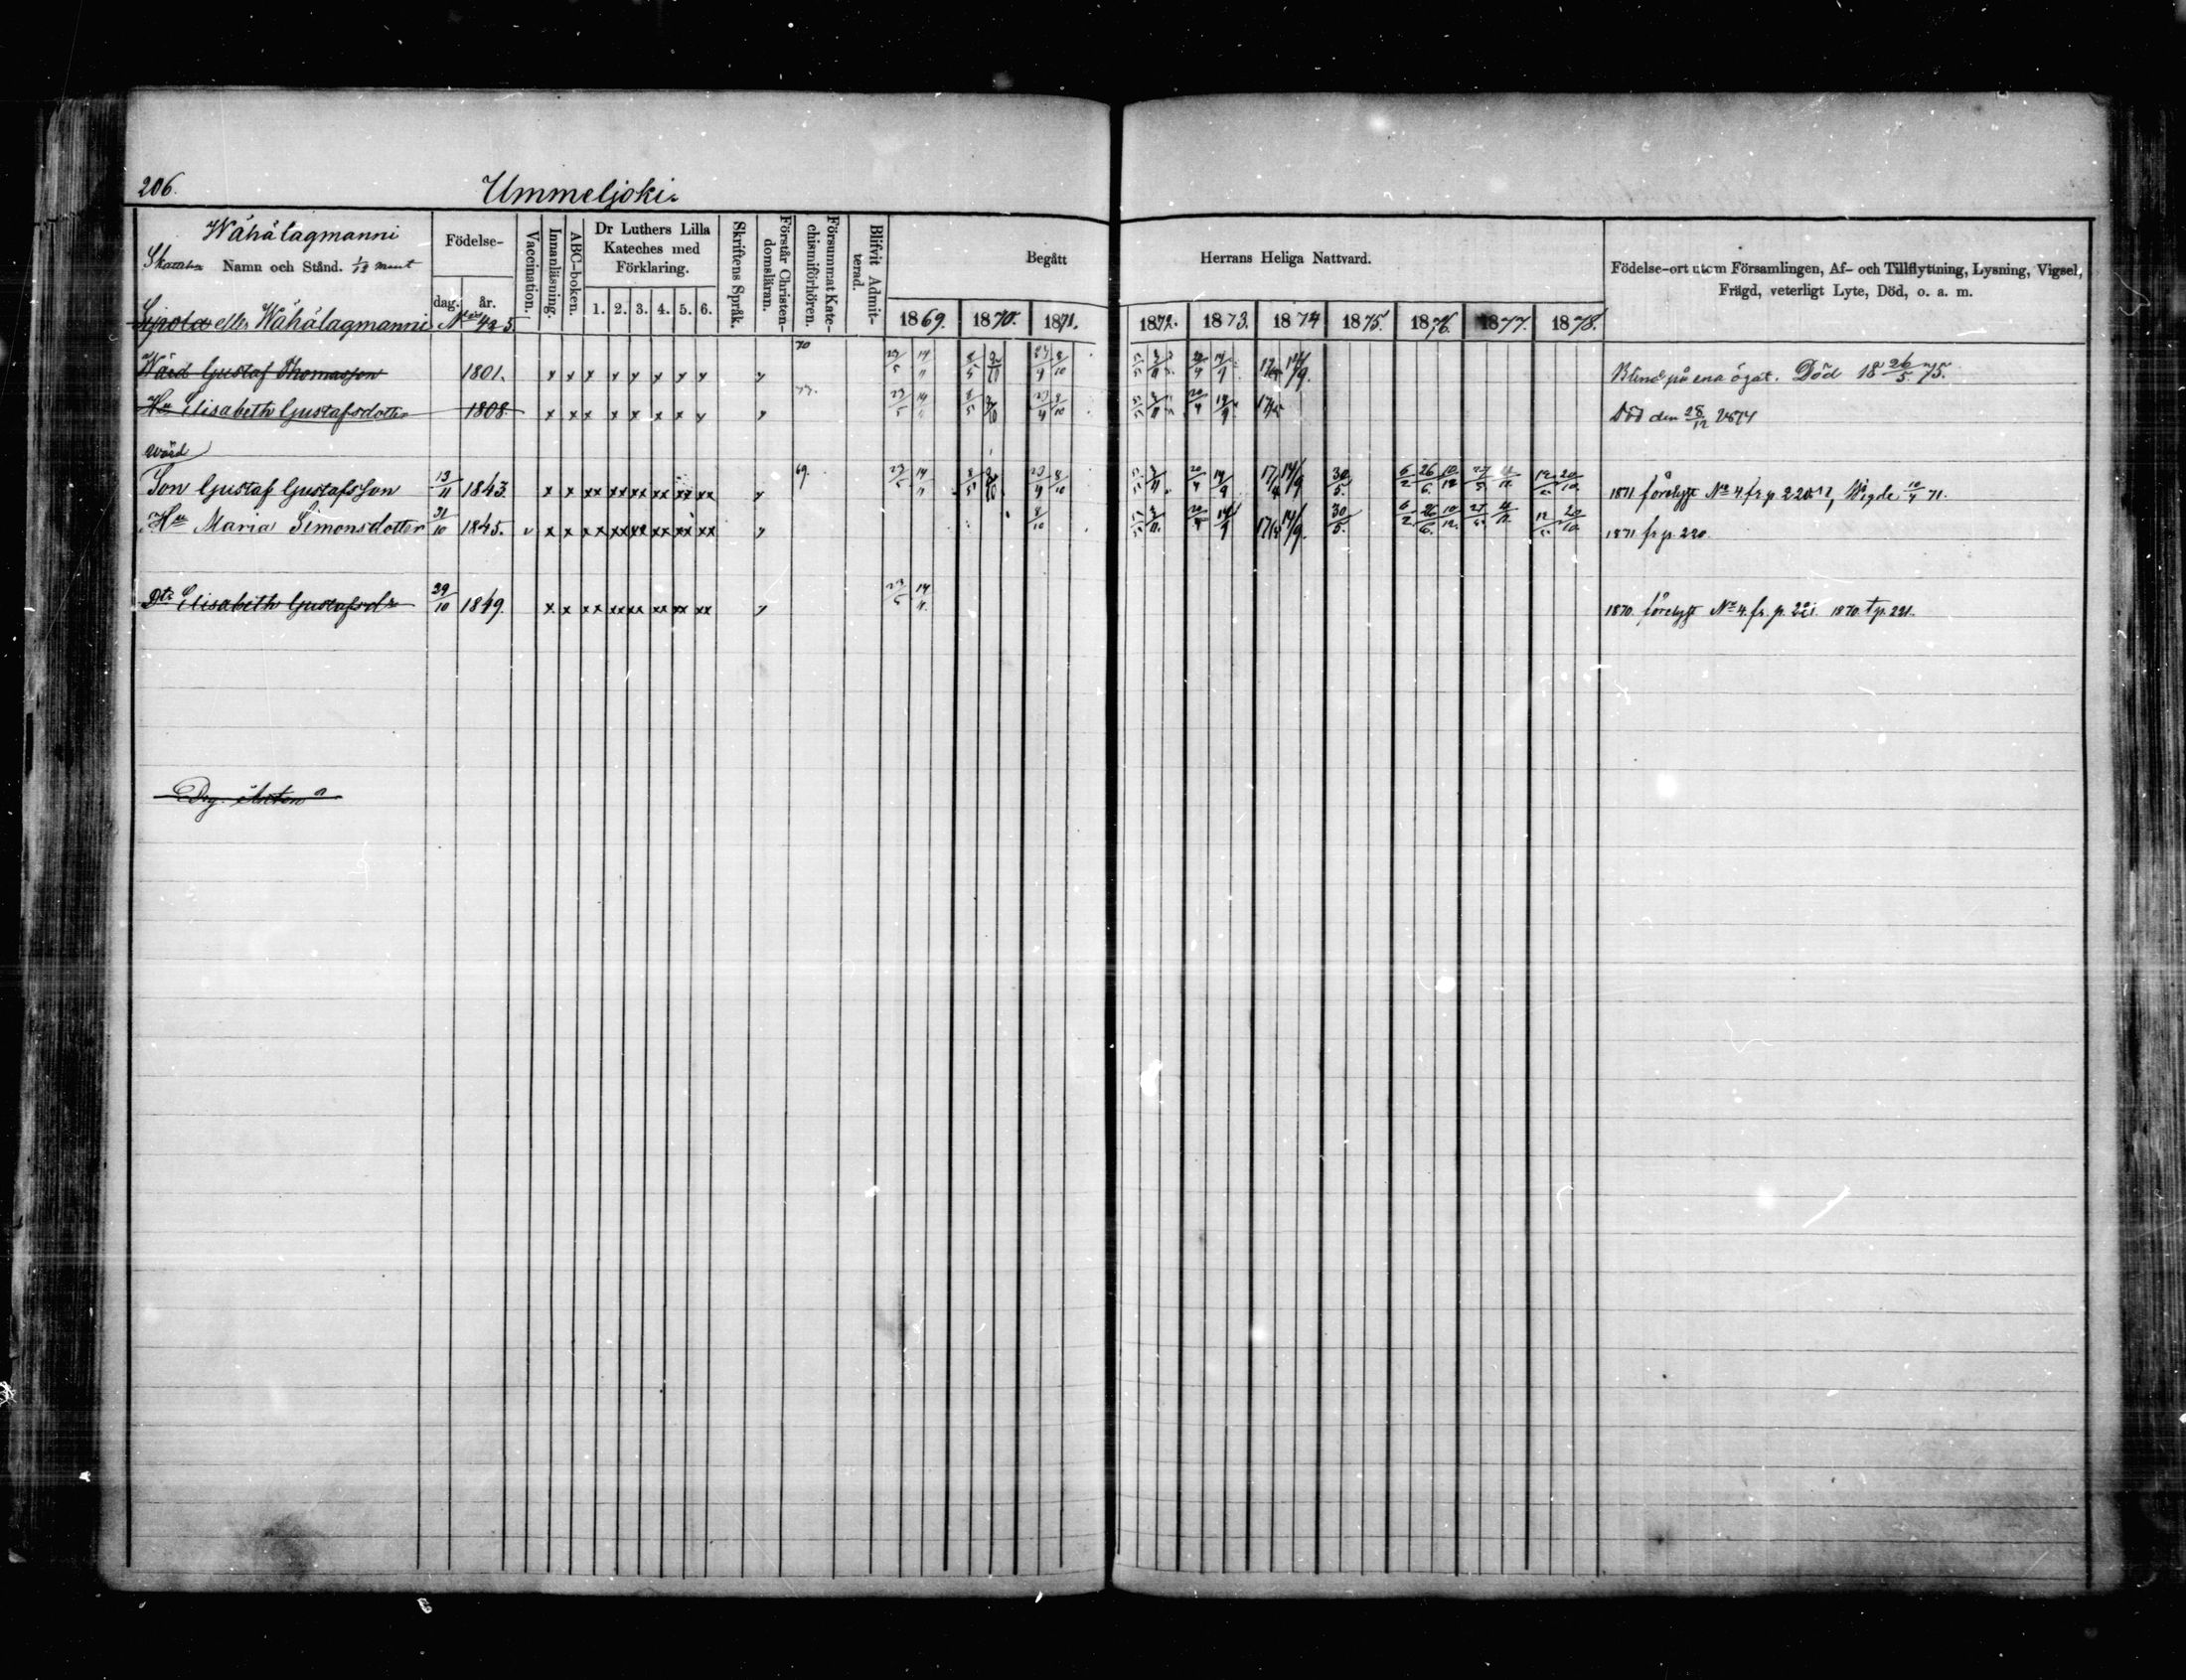 206. Ummeljoki.
Wähälagmanni
Namn och Stånd. 1/12 mant
Födelse-
dag. år.
Vaccination.
Innanläsning.
ABC-boken.
Dr Luthers Lilla Kateches med Förklaring.
1. 2. 3. 4. 5. 6.
Skriftens Språk.
Förstår Christendomsläran.
Försummat Katechismiförhören.
Blifvit Admitterad.
Begått Herrans Heliga Nattvard.
1869. 1870. 1871. 1872. 1873. 1874 1875. 1876. 1877. 1878.
Födelse-ort utom Församlingen, Af- och Tillflyttning, Lysning, Vigsel,
Frägd, veterligt Lyte, Död, o. a. m.
Sipola eller Wähälagmanni
Wärd Gustaf Thomasson 1801. 70 Blind på ena ögat. Död 18 26/5. 75.
Hu Elisabeth Gustafsdotter 1808 Död den 28/12 1874
Wärd
Son Gustaf Gustafsson 13/11 1843. 69. 30/5. 6/2 26/6. 10/12 1871 Nº 4 fr. p. Wigde 10/4 71.
Hu Maria Simonsdotter 31/10 1845. 8/10 30/5. 6/2 26/6. 10/12. 1871 fr p. 220.
Dtr Elisabeth Gustafsdr 29/10 1849. 1870. Nº 4. fr. p. 221. 1870. t p. 221.